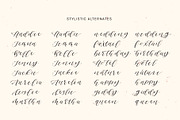 STYLISTIC ALTERNATES
Maddie Maddie wedding wedding
Jenna Jenna foxtail foxtail
Belle Belle birthday birthday
Jenny Jenny Hotel Hotel
Jackie Jackie nature nature
Aurelie Aurelie happy happy
Leslie Leslie giddy giddy
martha martha queen queen